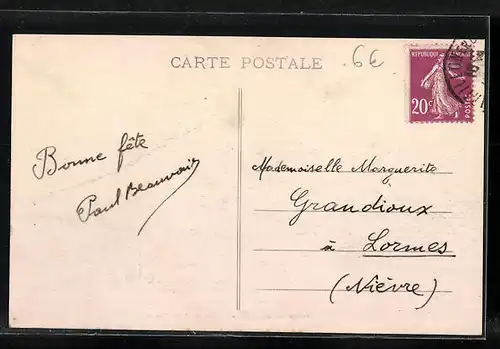 CARTE POSTALE
6€
REPUBLIQUE
20c
POSTES
Bonne fête
Paul Beauvais
Mademoiselle Marguerite
Grandioux
à Lormes
(Nièvre)